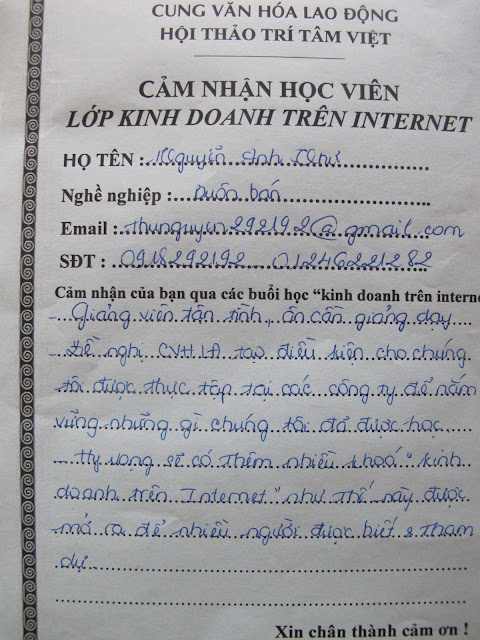 CUNG VĂN HÓA LAO ĐỘNG
HỘI THẢO TRÍ TÂM VIỆT
CẢM NHẬN HỌC VIÊN
LỚP KINH DOANH TRÊN INTERNET
HỌ TÊN : Nguyễn Anh Thư
Nghề nghiệp : Buôn bán
Email : thunguyen292192@gmail.com
SĐT : 0918292192 01246221282
Cảm nhận của bạn qua các buổi học “kinh doanh trên interne
Giảng viên tận tình, ân cần giảng dạy
Đề nghị CVHLĐ tạo điều kiện cho chúng
tôi được thực tập tại các công ty để nắm
vững những gì chúng tôi đã được học
Hy vọng sẽ có thêm nhiều khoá "kinh
doanh trên Internet" như thế này được
mở ra để nhiều người được biết & tham
dự
Xin chân thành cảm ơn !